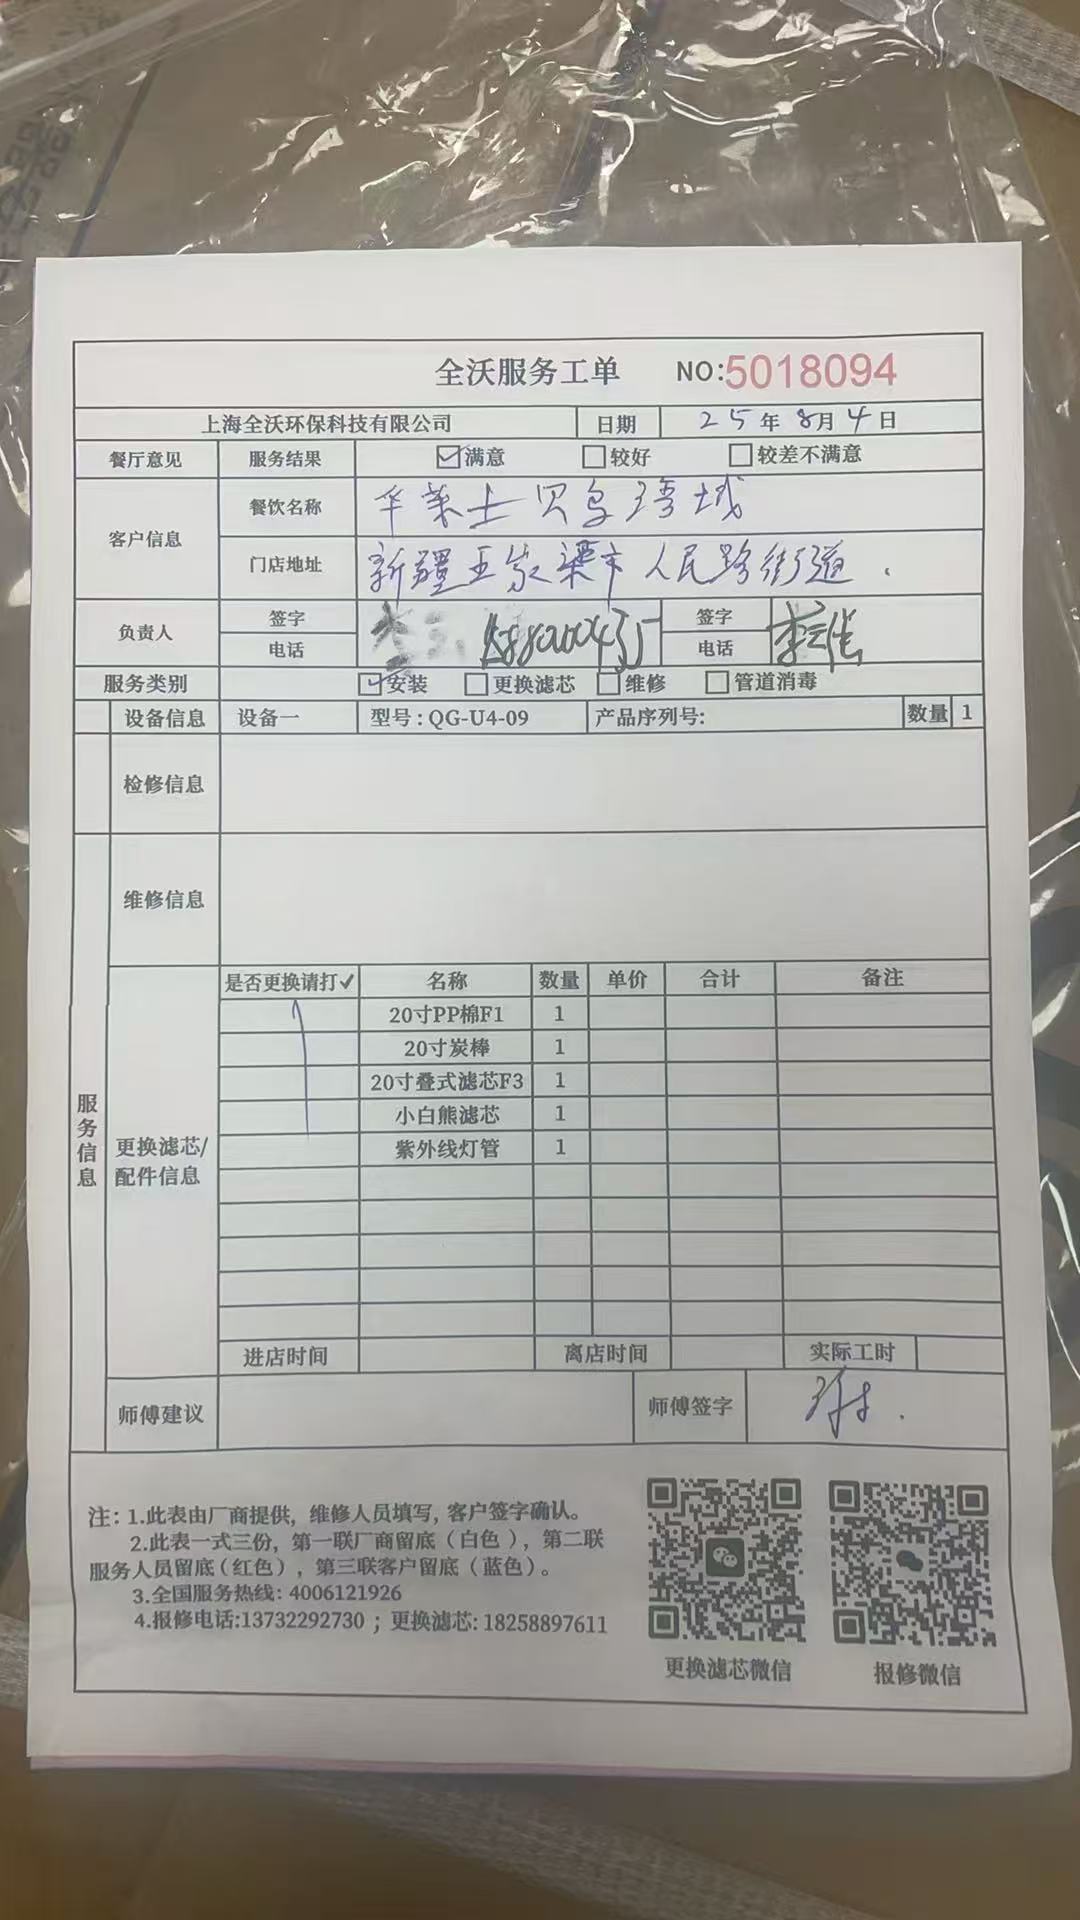 全沃服务工单 NO:5018094
上海全沃环保科技有限公司 日期 25年8月4日
餐厅意见 服务结果 ☑满意 □较好 □较差不满意
客户信息 餐饮名称 华莱士贝鸟湾域
门店地址 新疆五家渠市人民路街道.
负责人 签字 签字
电话 电话
服务类别 ☑安装 □更换滤芯 □维修 □管道消毒
设备信息 设备一 型号:QG-U4-09 产品序列号: 数量 1
检修信息
维修信息
服务信息
更换滤芯/配件信息
是否更换请打✓ 名称 数量 单价 合计 备注
20寸PP棉F1 1
20寸炭棒 1
20寸叠式滤芯F3 1
小白熊滤芯 1
紫外线灯管 1
进店时间 离店时间 实际工时
师傅建议 师傅签字
注:1.此表由厂商提供,维修人员填写,客户签字确认。
2.此表一式三份,第一联厂商留底(白色),第二联
服务人员留底(红色),第三联客户留底(蓝色)。
3.全国服务热线:4006121926
4.报修电话:13732292730;更换滤芯:18258897611
更换滤芯微信 报修微信